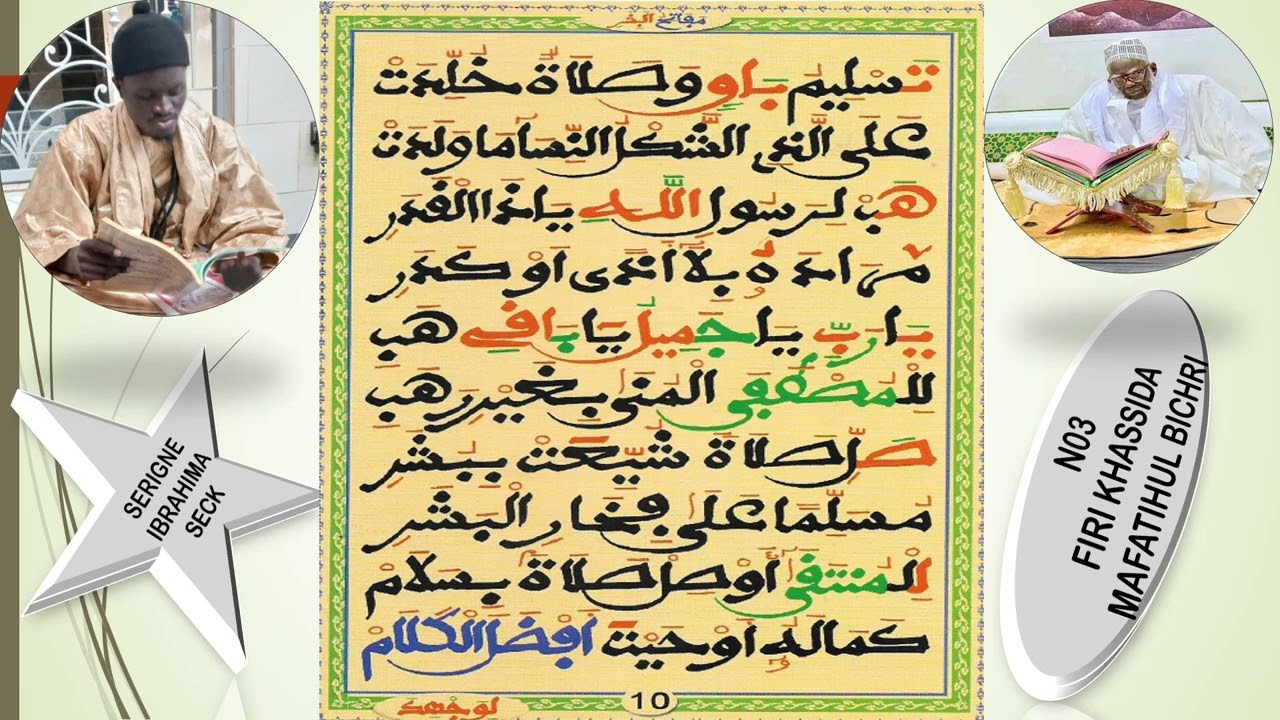 مفاتح البشر
تَسْلِيمُ بَاوٍ وَصَلَاةٌ خُلِّدَتْ
عَلَى الَّذِي الشَّكْلَ النِّسَا مَا وَلَدَتْ
هَبْ لِرَسُولِ اللَّهِ يَا ذَا الْقَدَرِ
مُرَادَهُ بِلَا أَذًى أَوْ كَدَرِ
يَا رَبِّ يَا جَمِيلُ يَا بَافِي هَبِ
لِلْمُصْطَفَى الْمُنَى بِغَيْرِ رَهَبِ
صَلِّ صَلَاةً شُيِّعَتْ بِبِشَرِ
مُسَلِّمًا عَلَى فِخَارِ الْبَشَرِ
لِلْمُنتَفَى أَوْصِلْ صَلَاةً بِسَلَامْ
كَمَا لَهُ أَوْحَيْتَ أَفْضَلَ الْكَلَامْ
10
SERIGNE
IBRAHIMA
SECK
N03
FIRI KHASSIDA
MAFATIHUL BICHRI